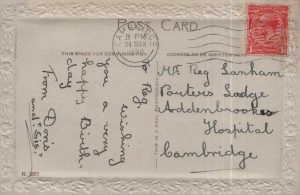 POST CARD
CAMBRIDGE
9 PM
24 MAY
THIS SPACE FOR COMMUNICATION
ADDRESS TO BE WRITTEN HERE
To Reg
wishing
you a very
happy Birth-
day
From Doris
and "Sis"
Mr Reg Lanham
Porters Lodge
Addenbrookes
Hospital
Cambridge